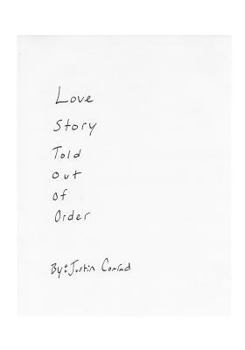 Love
Story
Told
out
of
Order
By: Justin Conrad